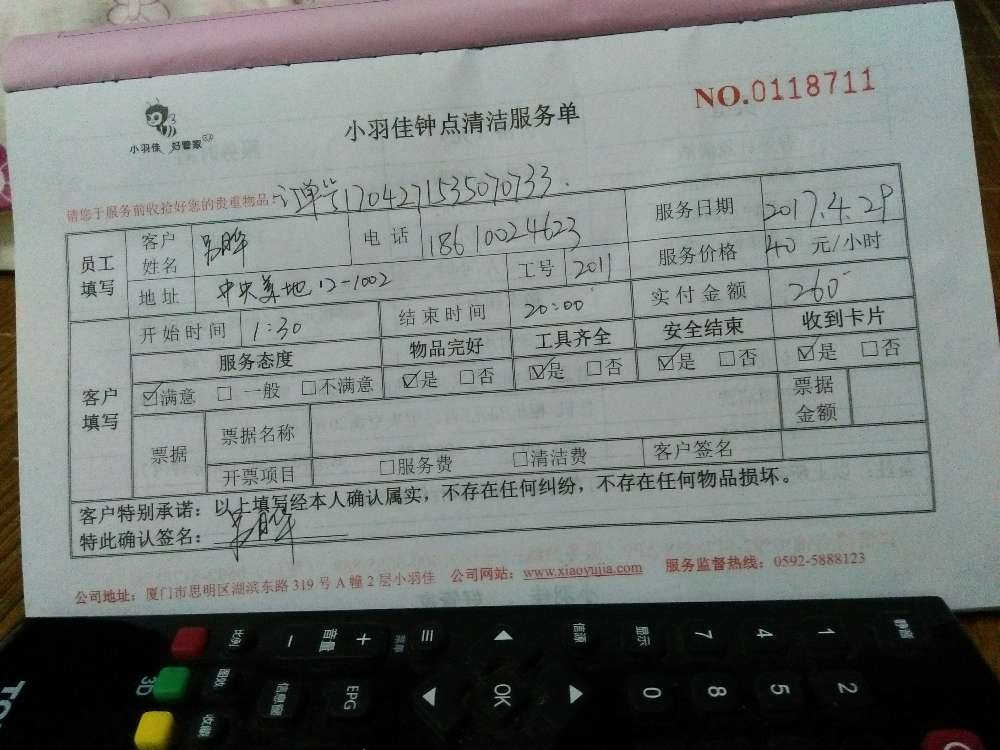 NO.0118711
小羽佳 好管家
小羽佳钟点清洁服务单
请您于服务前收拾好您的贵重物品 订单号1704271535070733.
员工填写 客户姓名 电话 18610024623 服务日期 2017.4.29
地址 中央美地12-1002 工号 2011 服务价格 40 元/小时
客户填写 开始时间 1:30 结束时间 20:00 实付金额 260
服务态度 物品完好 工具齐全 安全结束 收到卡片
☑满意 □一般 □不满意 ☑是 □否 ☑是 □否 ☑是 □否 ☑是 □否
票据 票据名称 票据金额
开票项目 □服务费 □清洁费 客户签名
客户特别承诺：以上填写经本人确认属实，不存在任何纠纷，不存在任何物品损坏。
特此确认签名：
公司地址：厦门市思明区湖滨东路319号A幢2层小羽佳 公司网站：www.xiaoyujia.com 服务监督热线：0592-5888123
比例 音量 菜单 信源 显示 7 4 1 静音
3D 图效 信息 EPG OK 0 8 5 2
收藏